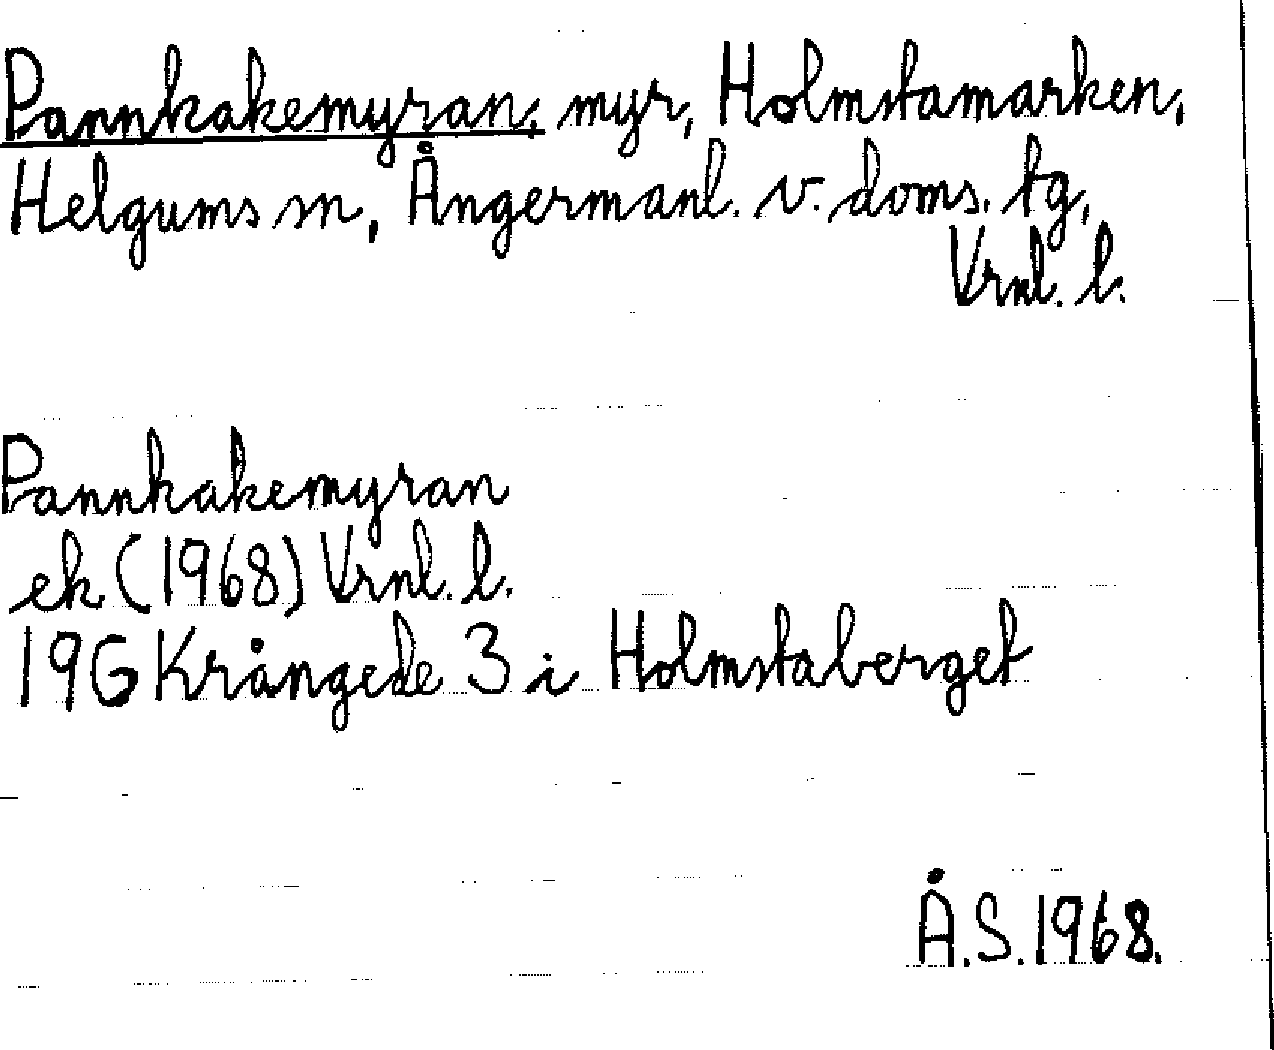 Pannkakemyran, myr, Holmstamarken,
Helgums sn, Ångermanl. v. doms. tg,
Vrnl. l.
Pannkakemyran
ek (1968) Vrnl. l.
19G Krångede 3 i Holmstaberget
Å.S. 1968.